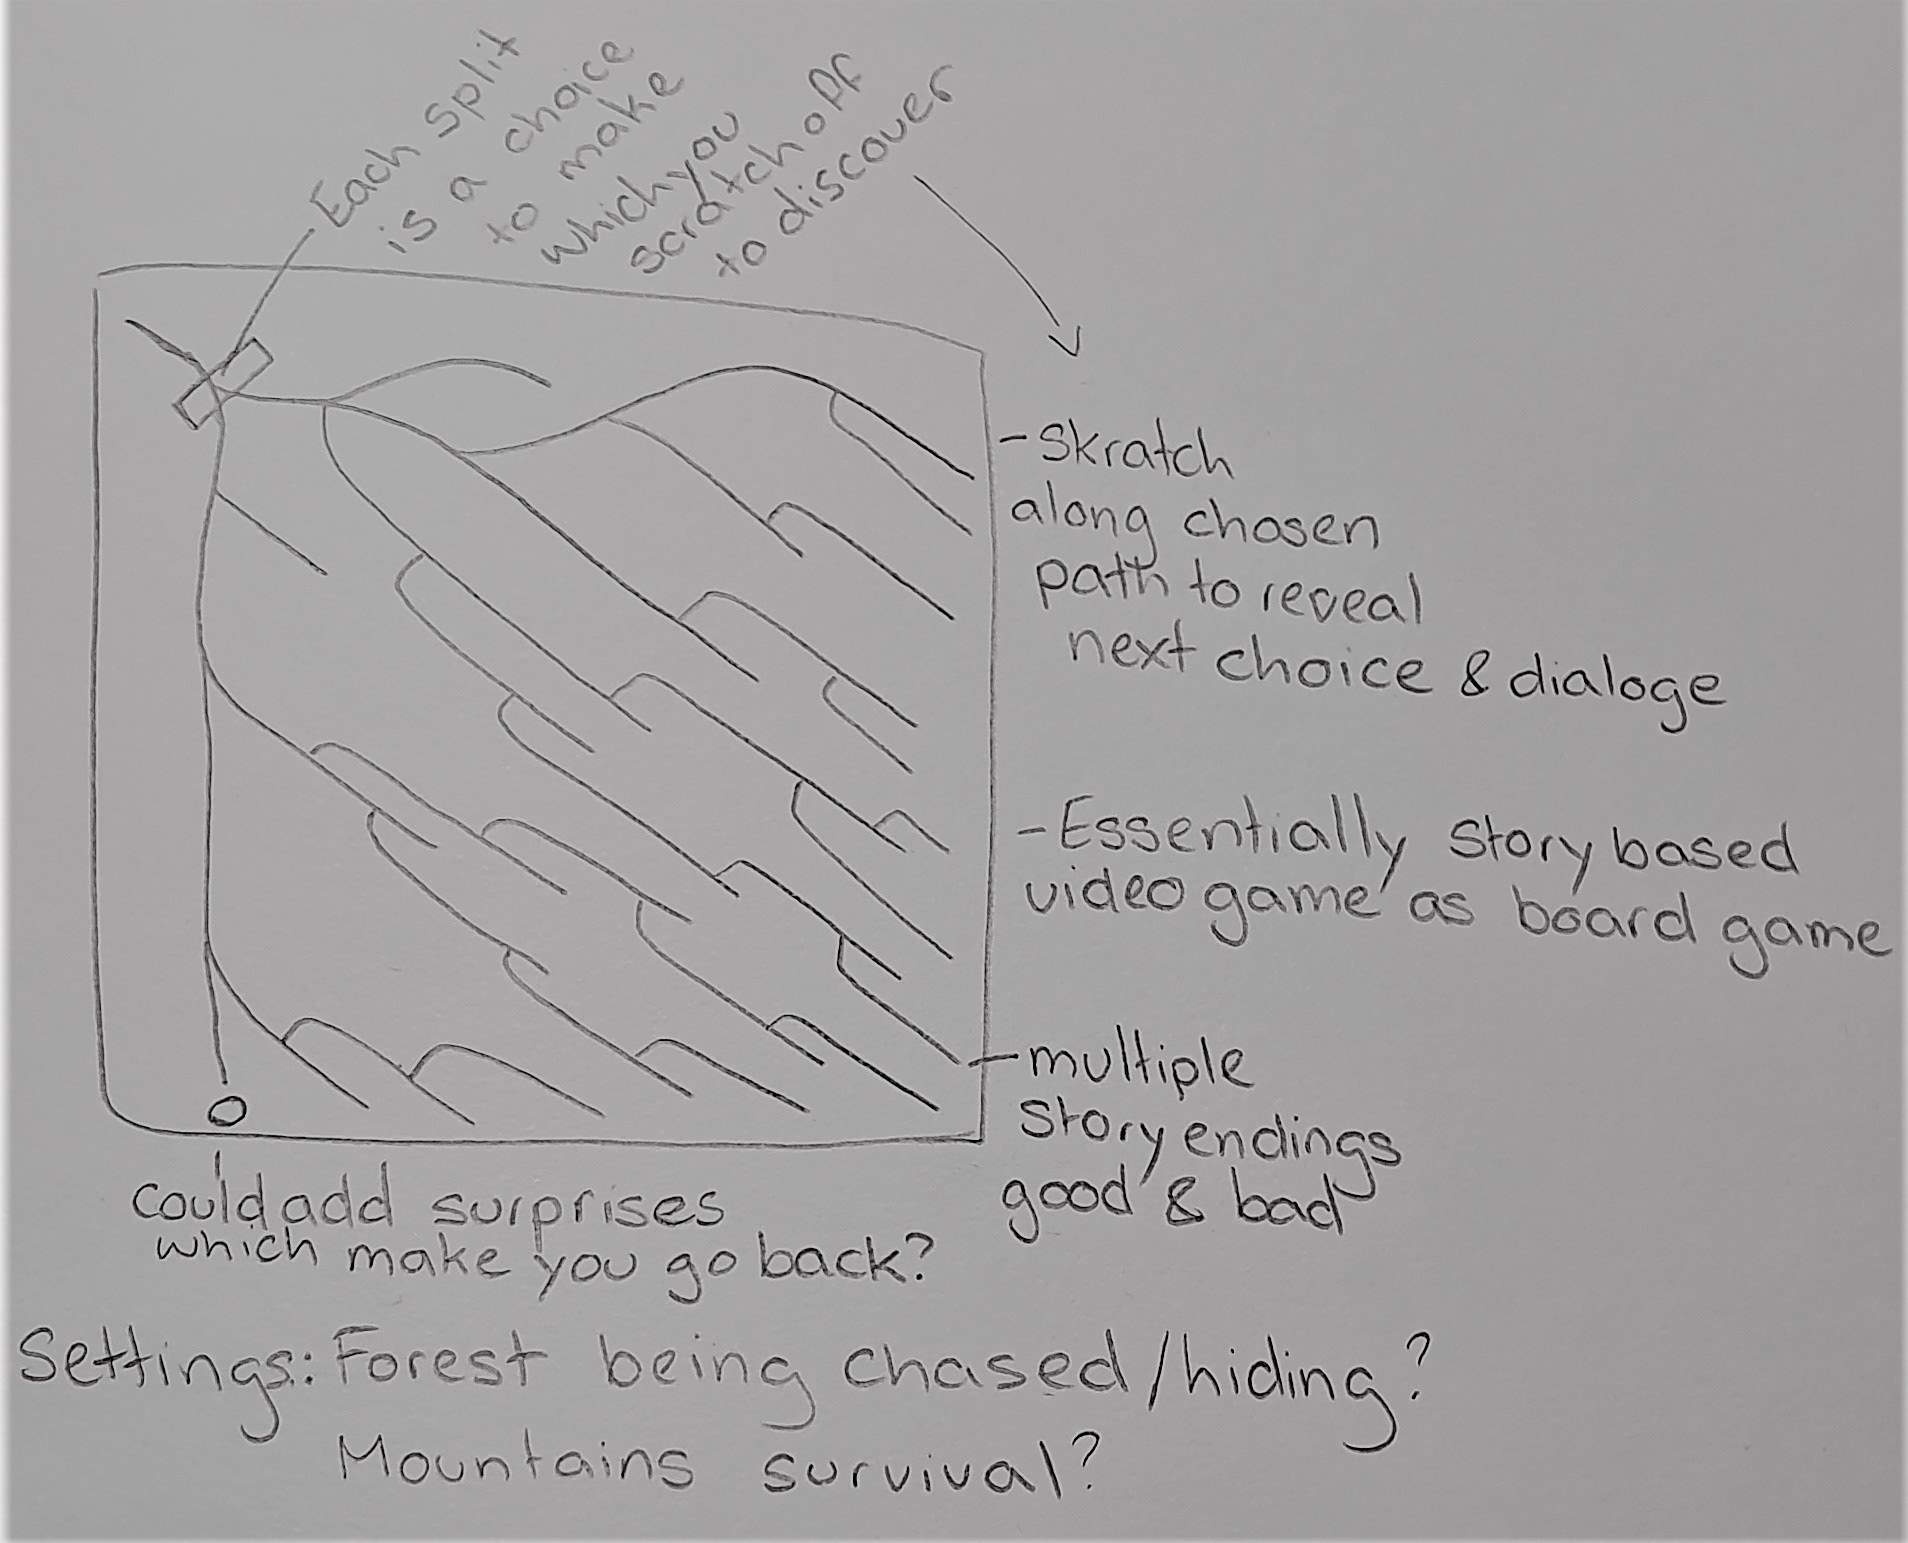 Each split
is a choice
to make
which you
scratch off
to discover
- Skratch
along chosen
path to reveal
next choice & dialoge
- Essentially story based
video game as board game
- multiple
story endings
good & bad
could add surprises
which make you go back?
Settings: Forest being chased/hiding?
Mountains survival?